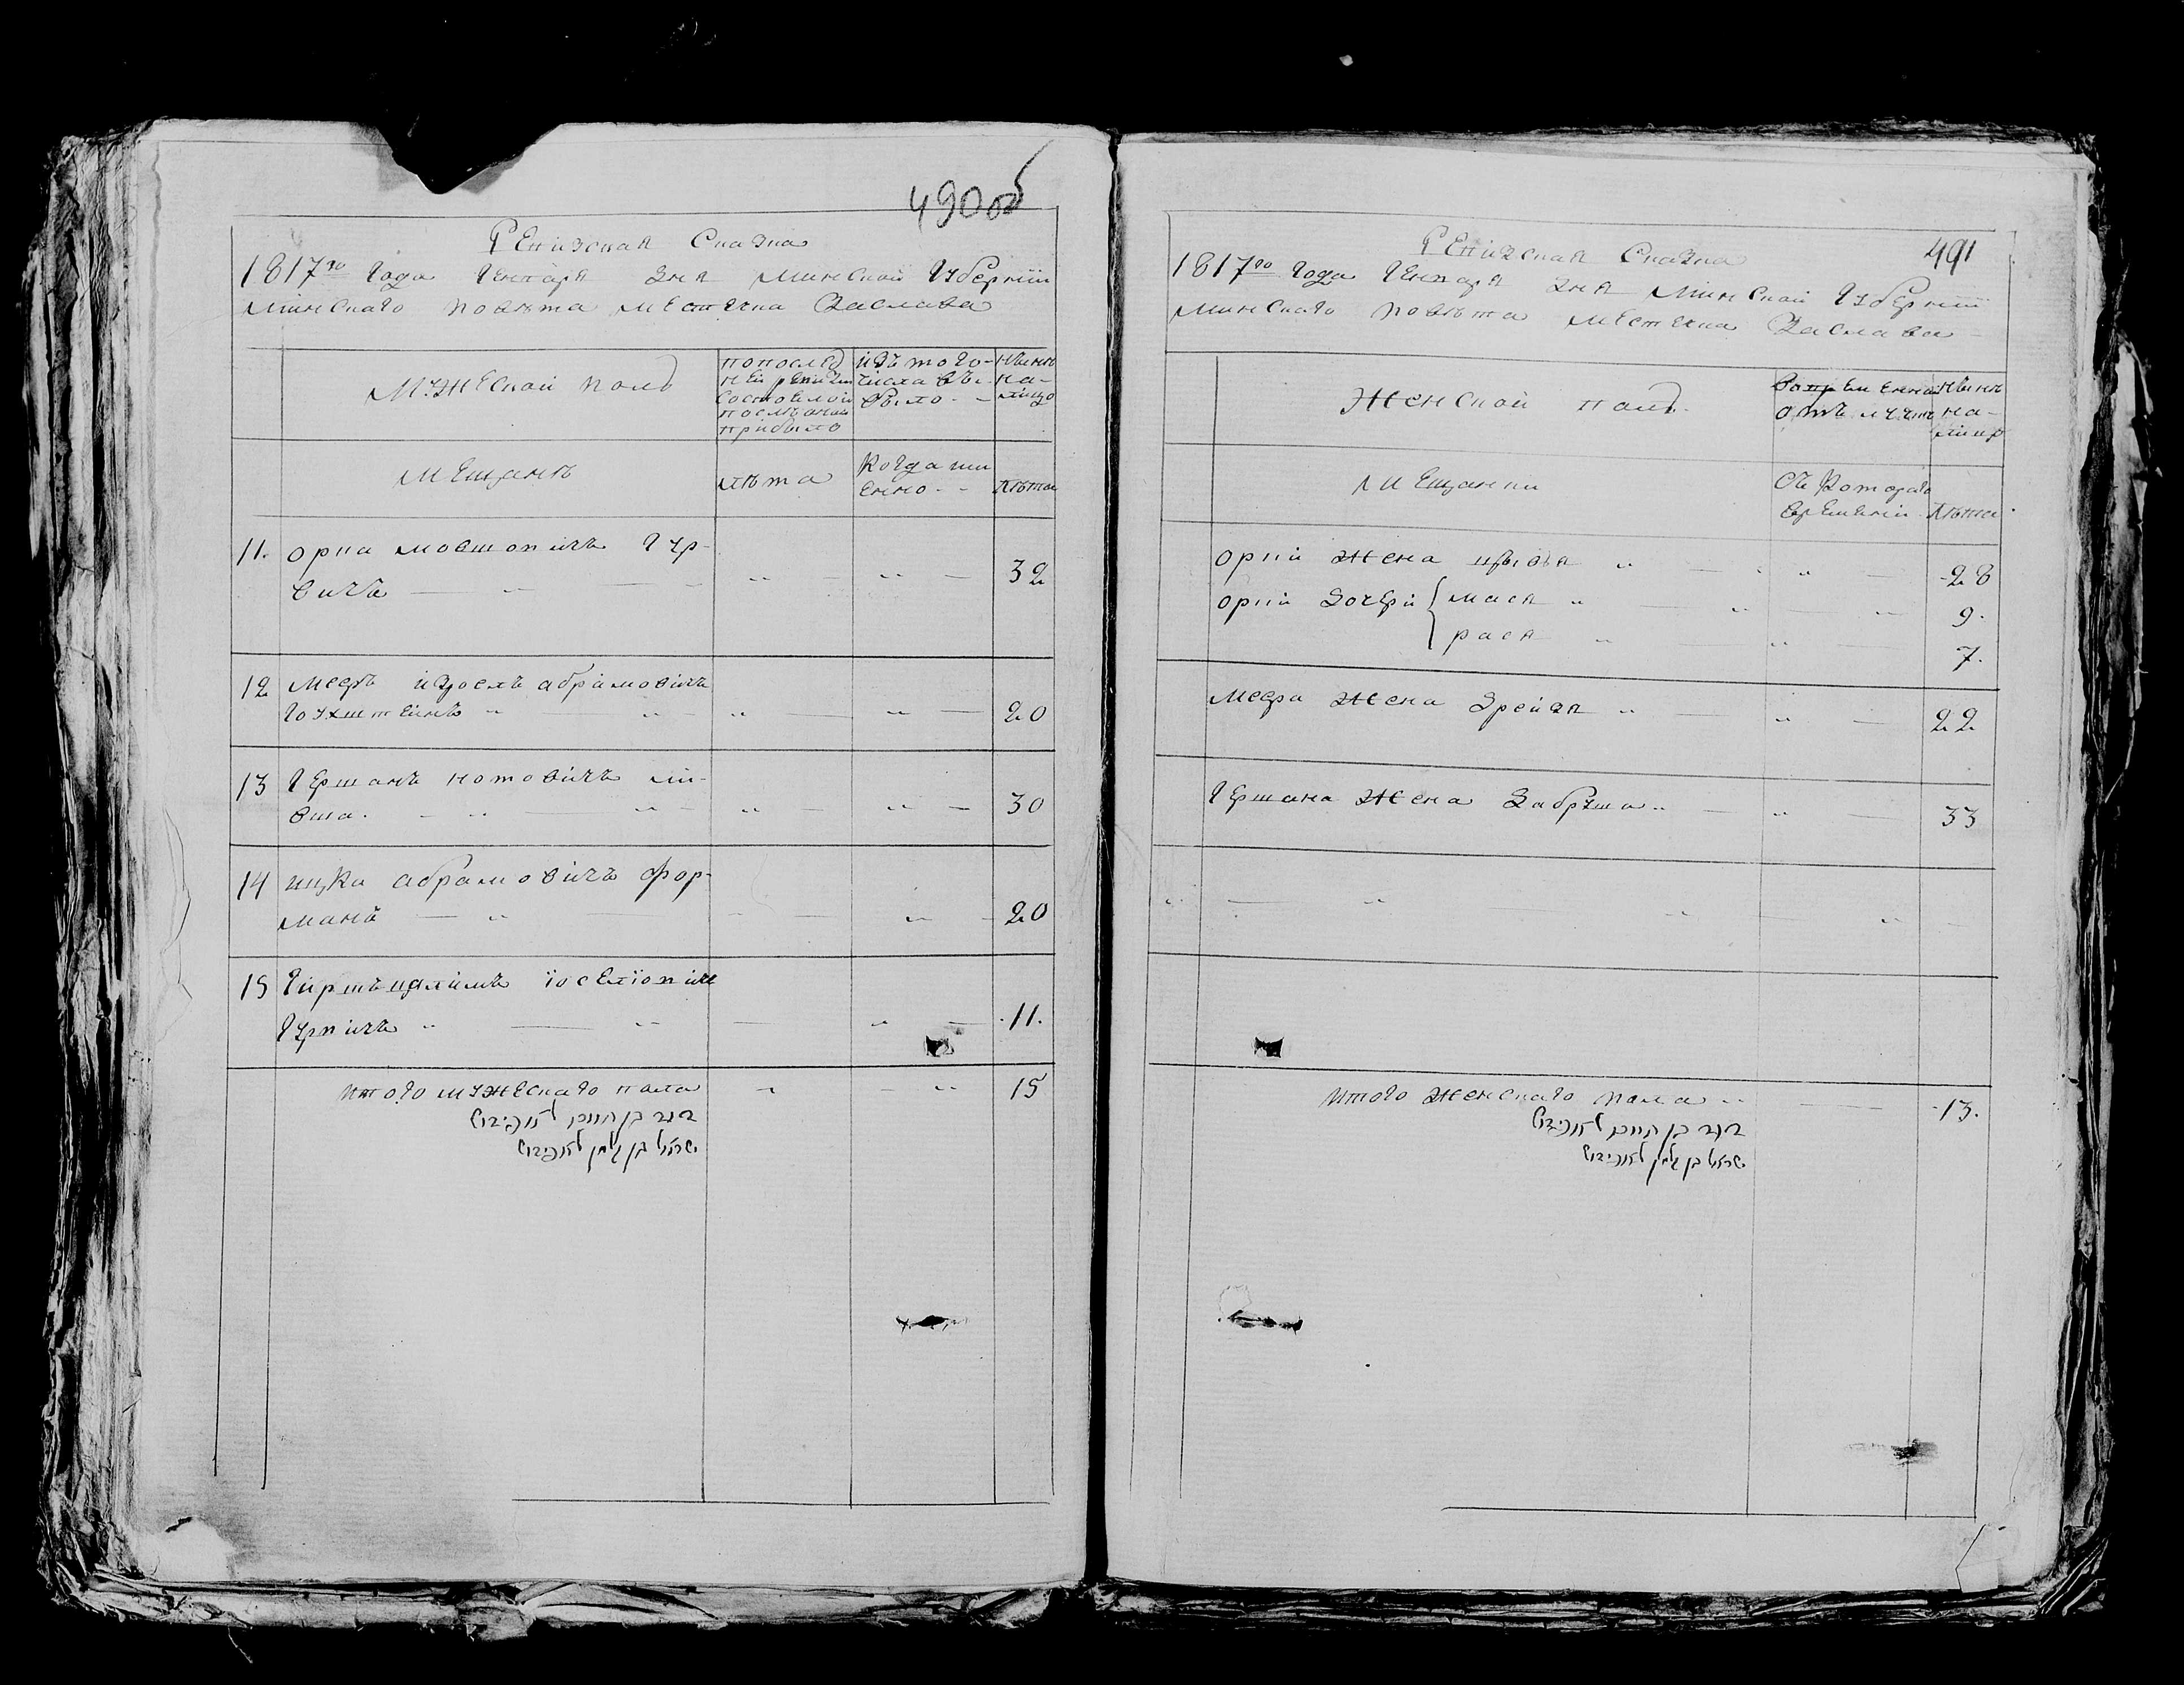 490об
Ревизская Сказка
1817го Года Генваря дня Минской Губернии
Минского повета местечка Заслава
Мужеской полъ
попослед
ней ревизии
состояло и
после оной
прибыло
изъ того
числа вы
было
ныне
на
лицо
мещанъ
лета
когда име
енно
лета
11. орка мовшовичъ Гур-
вичъ 32
12 мееръ изроель абрамовичъ
Гоухштейнъ 20
13 Гершанъ нотовичъ ли-
вша. 30
14 ицка абрамовичъ фор-
манъ 20
15 Гиршъ цалимъ иоселiовичъ
Гурвичъ 11.
итого мужескаго пола 15
491
Ревизская Сказка
1817го Года Генваря дня Минской Губернии
Минскаго повета местечка Заслава
Женской полъ.
во временной
отлучке
ныне
на-
лицо
мещанки
Съ Котораго
времени
лета
орки жена цывья 28
орки дочери { мася 9.
рася 7.
меера жена Эрейзя 22
Гершана жена Забруша 33
итого женскаго пола 13.